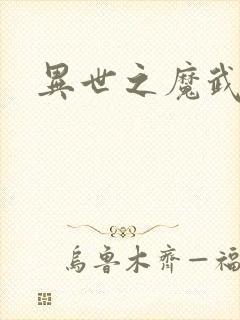 異世之魔武
烏魯木齊—福